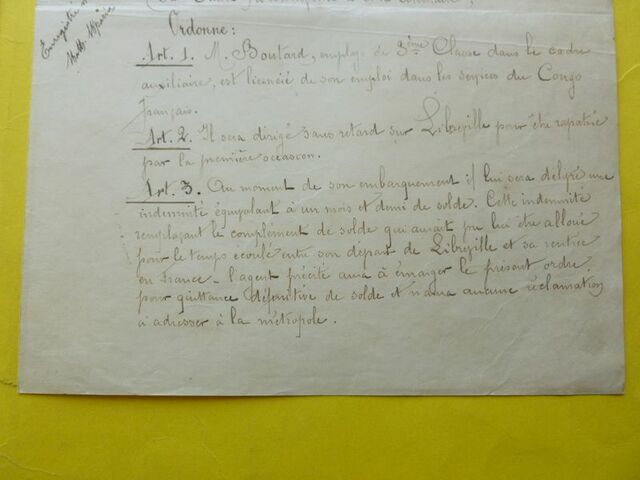 Ordonne :
Art. 1. M. Boutard, employé de 3ème Classe dans le cadre
auxiliaire, est licencié de son emploi dans les services du Congo
français.
Art. 2. Il sera dirigé sans retard sur Libreville pour être rapatrié
par la première occasion.
Art. 3. Au moment de son embarquement il lui sera délivré une
indemnité équivalant à un mois et demi de solde. Cette indemnité
remplaçant le complément de solde qui aurait pu lui être alloué
pour le temps écoulé entre son départ de Libreville et sa rentrée
en France - l'agent précité aura à émarger le présent ordre
pour quittance définitive de solde et n'aura aucune réclamation
à adresser à la métropole.